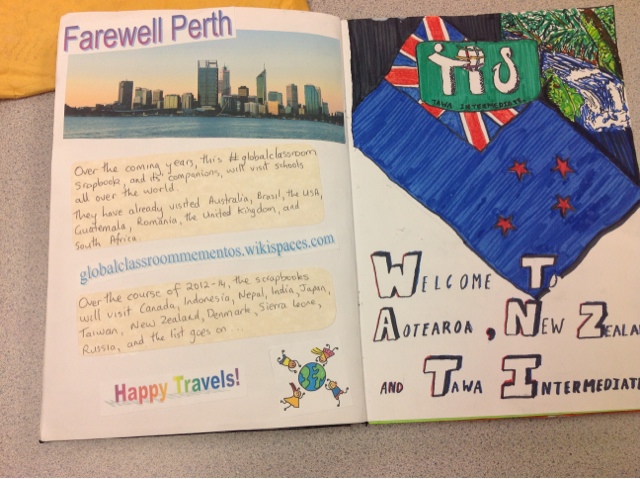 Farewell Perth
Over the coming years, this #globalclassroom
Scrapbook, and its companions, will visit schools
all over the world.
They have already visited Australia, Brasil, the USA,
Guatemala, Romania, the United Kingdom, and
South Africa.
globalclassroommementos.wikispaces.com
Over the course of 2012-14, the scrapbooks
will visit Canada, Indonesia, Nepal, India, Japan,
Taiwan, New Zealand, Denmark, Sierra Leone,
Russia, and the list goes on ...
Happy Travels!
TIS
TAWA INTERMEDIATE
WELCOME TO
AOTEAROA, NEW ZEALA
AND TAWA INTERMEDIATE